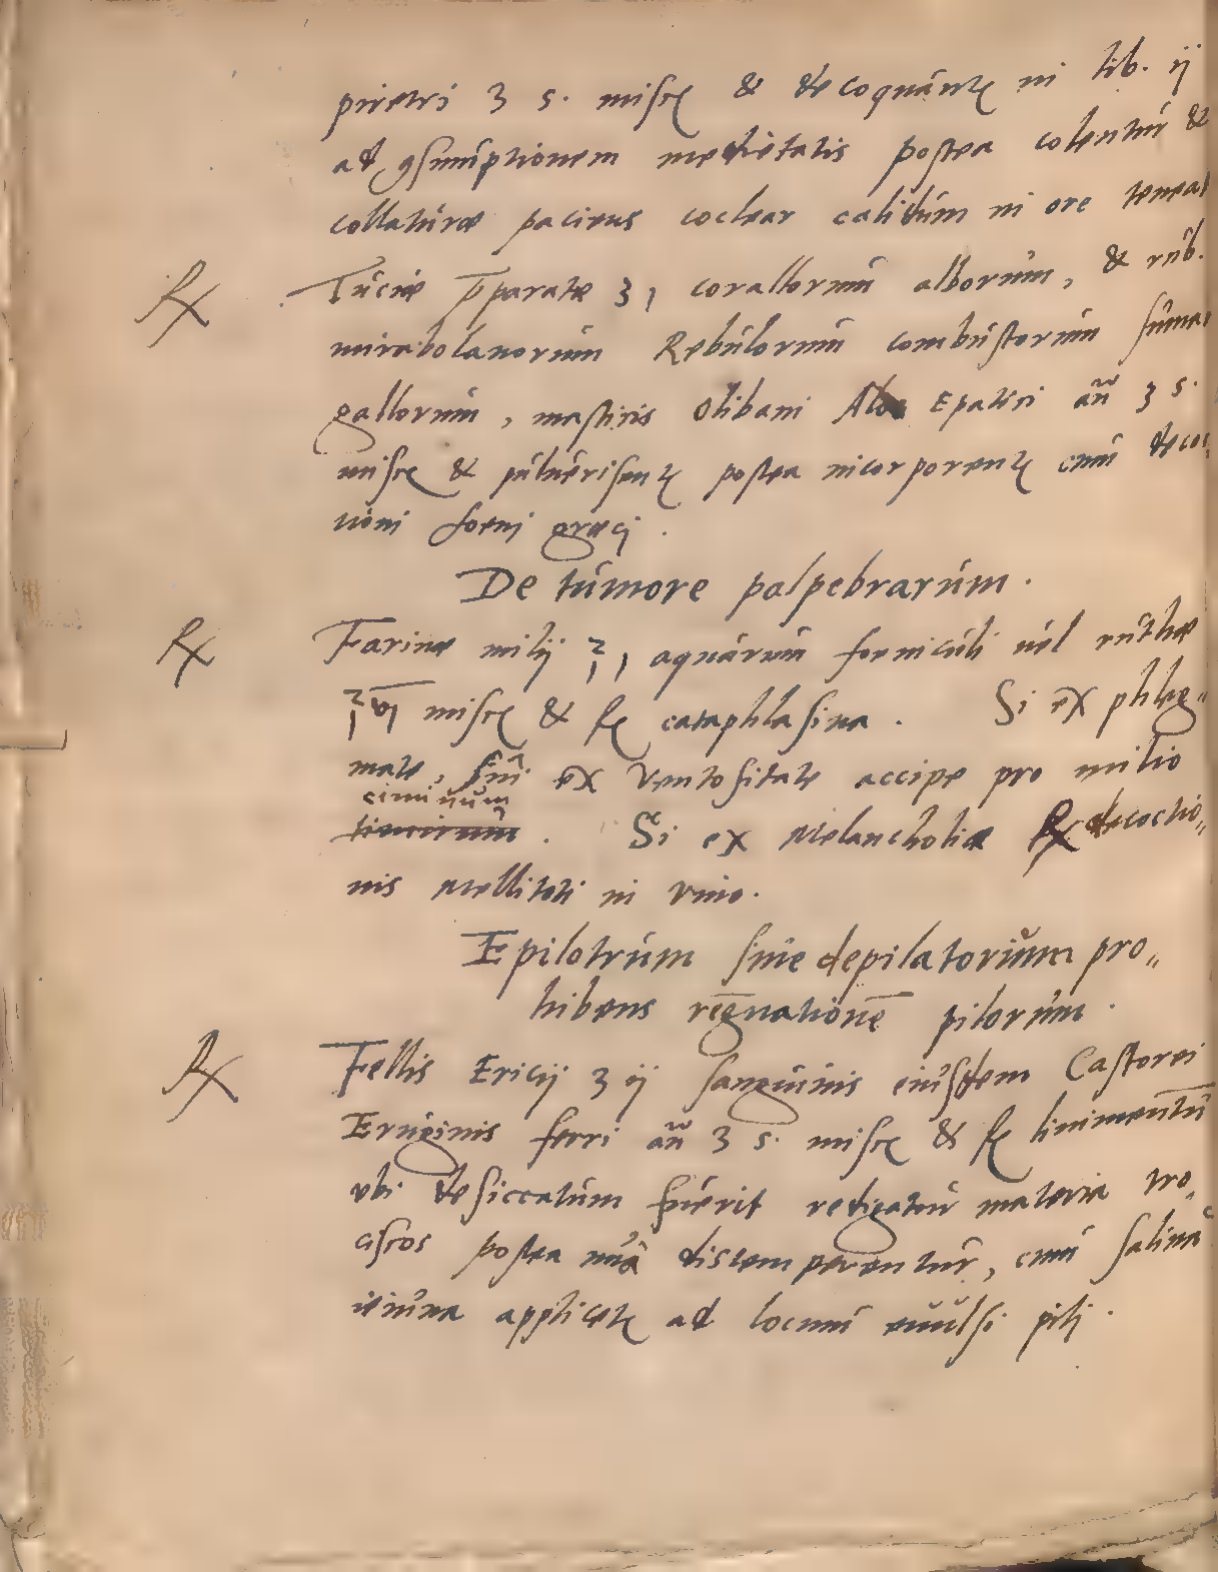 piretri ʒ s. misce & decoquantur in lib. ij
ad ꝯsumptionem medietatis postea colentur &
collaturæ paciens coclear calidum in ore teneat
℞ Tuciæ p̄paratæ ʒ 1, corallorum alborum, & rub.
mirabolanorum Kebulorum combustorum fuma
gallorum, masticis olibani Aloe Epatici añ ʒ s.
misce & puluerisentur postea incorporentur cum decoc
tioni foeni græci.
De tumore palpebrarum.
℞ Farinæ milij ℥ 1, aquarum foeniculi uel ruthæ
℥ vj misce & f. cataphlasma. Si ex phleg"
mate, siui ex ventositate accipe pro milio
ciminum
. Si ex Melancholia ℞ decoctio"
nis Mellitoti in vino.
Epilotrum siue depilatorium pro"
hibens regnationē pilorum.
℞ Fellis Ericij ʒ ij sanguinis eiusdem Castorei
Eruginis ferri añ ʒ s. misce & f. linimentū
vbi desiccatum fuerit redigatur materia tro"
ciscos postea distemperentur, cum saliua
ieiuna applicetur ad locum euulsi pilj.